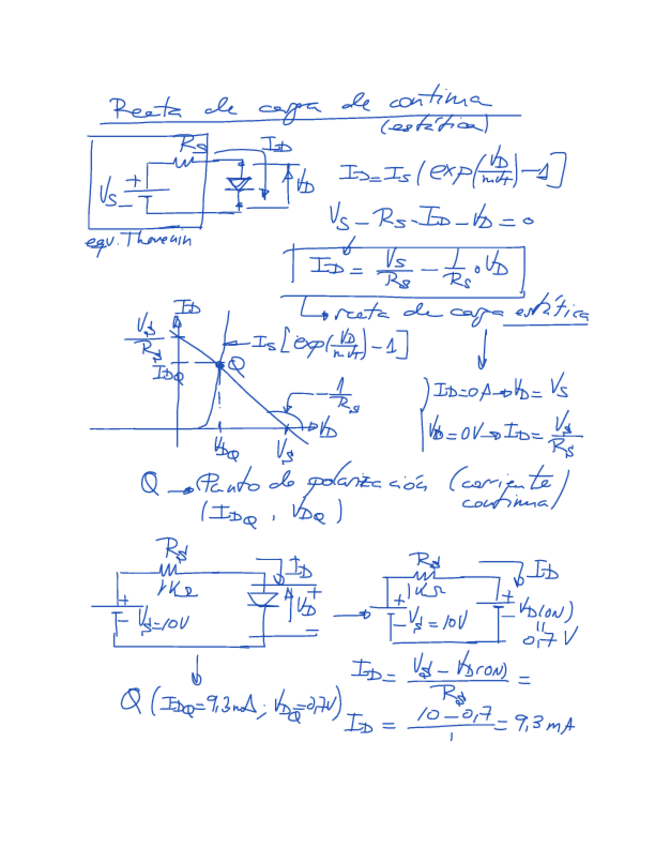 Recta de carga de continua
(estática)
Rs
ID
Vs
+
VD
equiv. Thevenin
ID=Is(exp(VD/nVT)-1]
Vs-Rs·ID-VD=0
ID = Vs/Rs - 1/Rs · VD
recta de carga estática
ID
Vs/Rs
IDQ
Is[exp(VD/nVT)-1]
Q
-1/Rs
VD
VDQ
Vs
ID=0A→VD=Vs
VD=0V→ID=Vs/Rs
Q → Punto de polarización (corriente continua)
(IDQ, VDQ)
Rs
1KΩ
ID
+
Vs=10V
VD
+
-
→
Rs
1KΩ
ID
+
Vs=10V
+
VD(ON)
=
0,7V
Q (IDQ=9,3mA; VDQ=0,7V)
ID = Vs-VD(ON)/Rs =
ID = 10-0,7/1 = 9,3mA